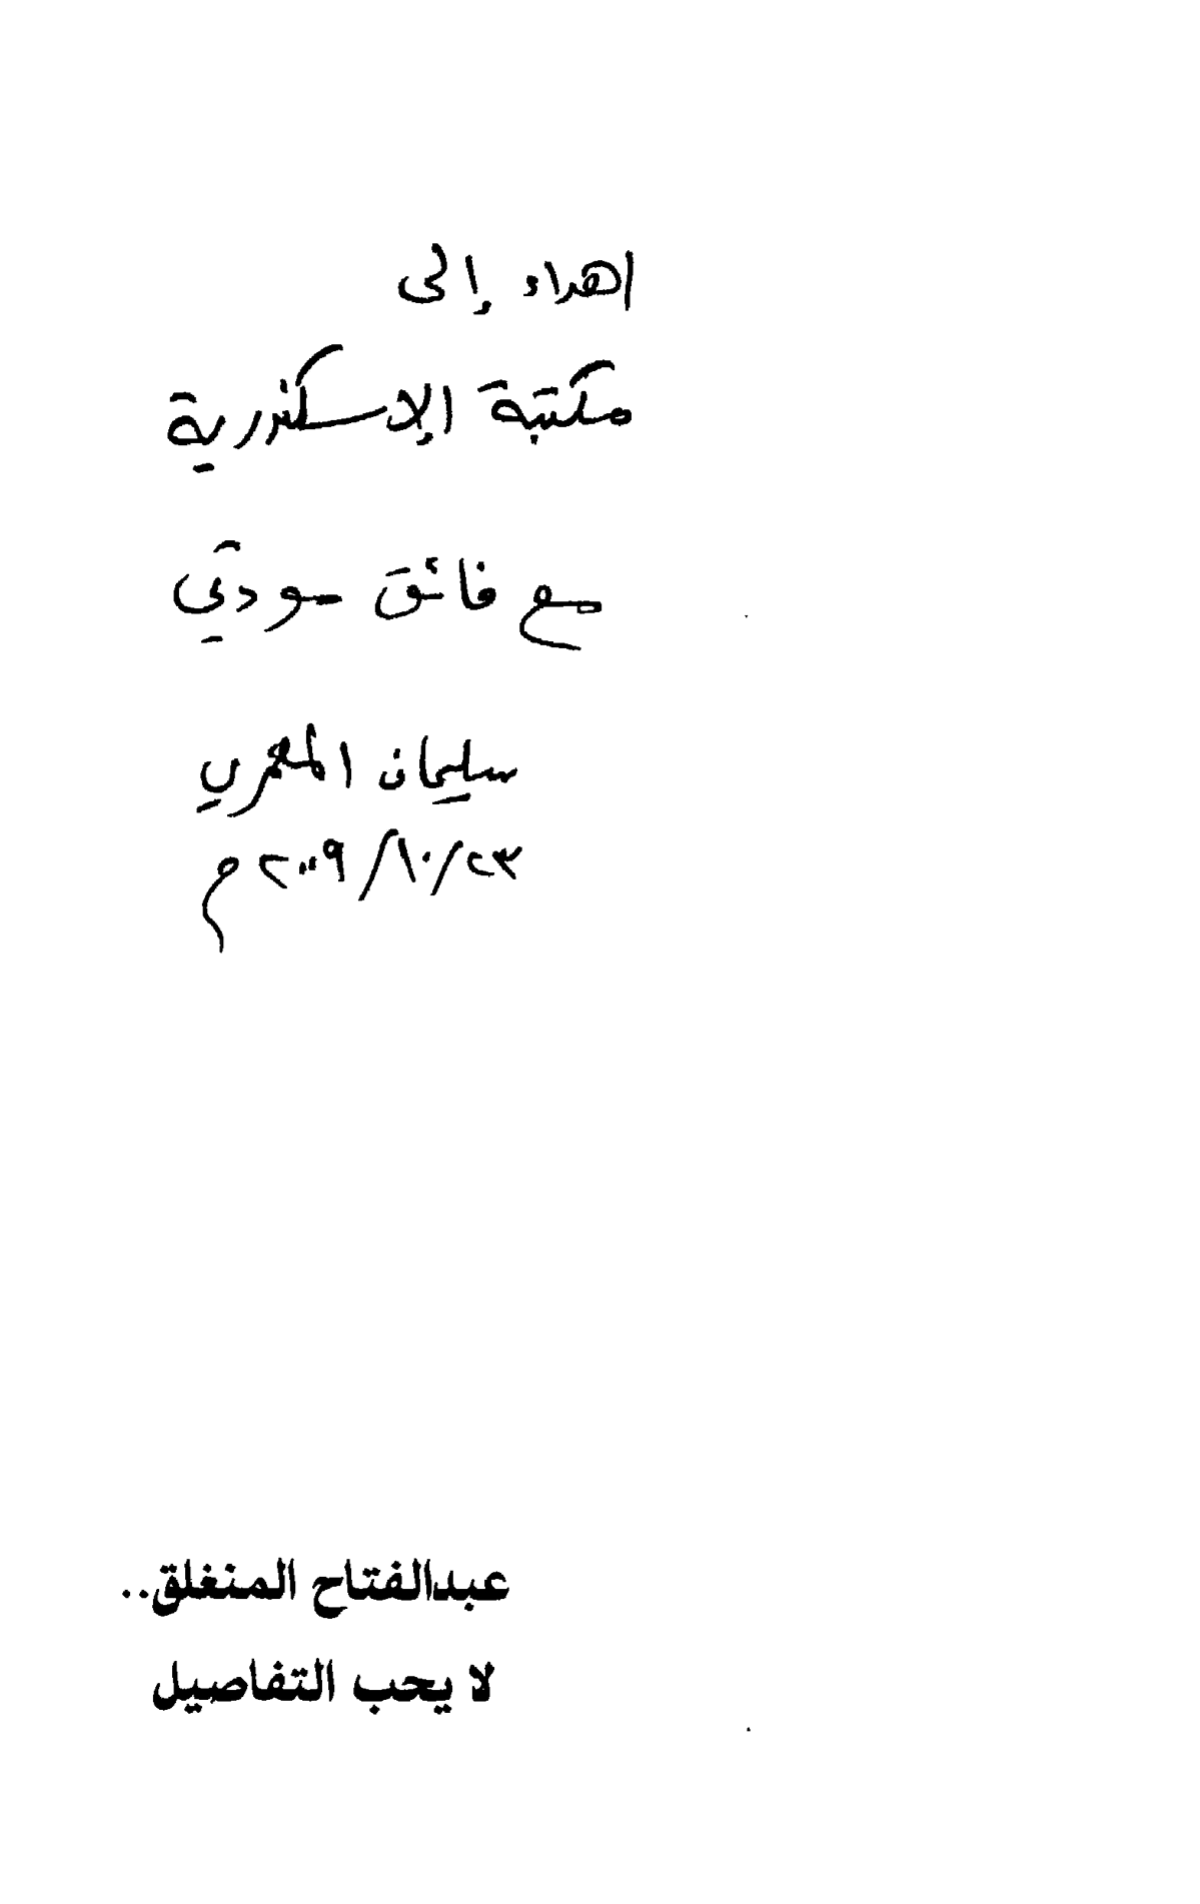 اهداء إلى
مكتبة الإسكندرية
مع فائق مودتي
سليمان المعمري
٢٣/١٠/٢٠٠٩م
عبدالفتاح المنغلق..
لا يحب التفاصيل